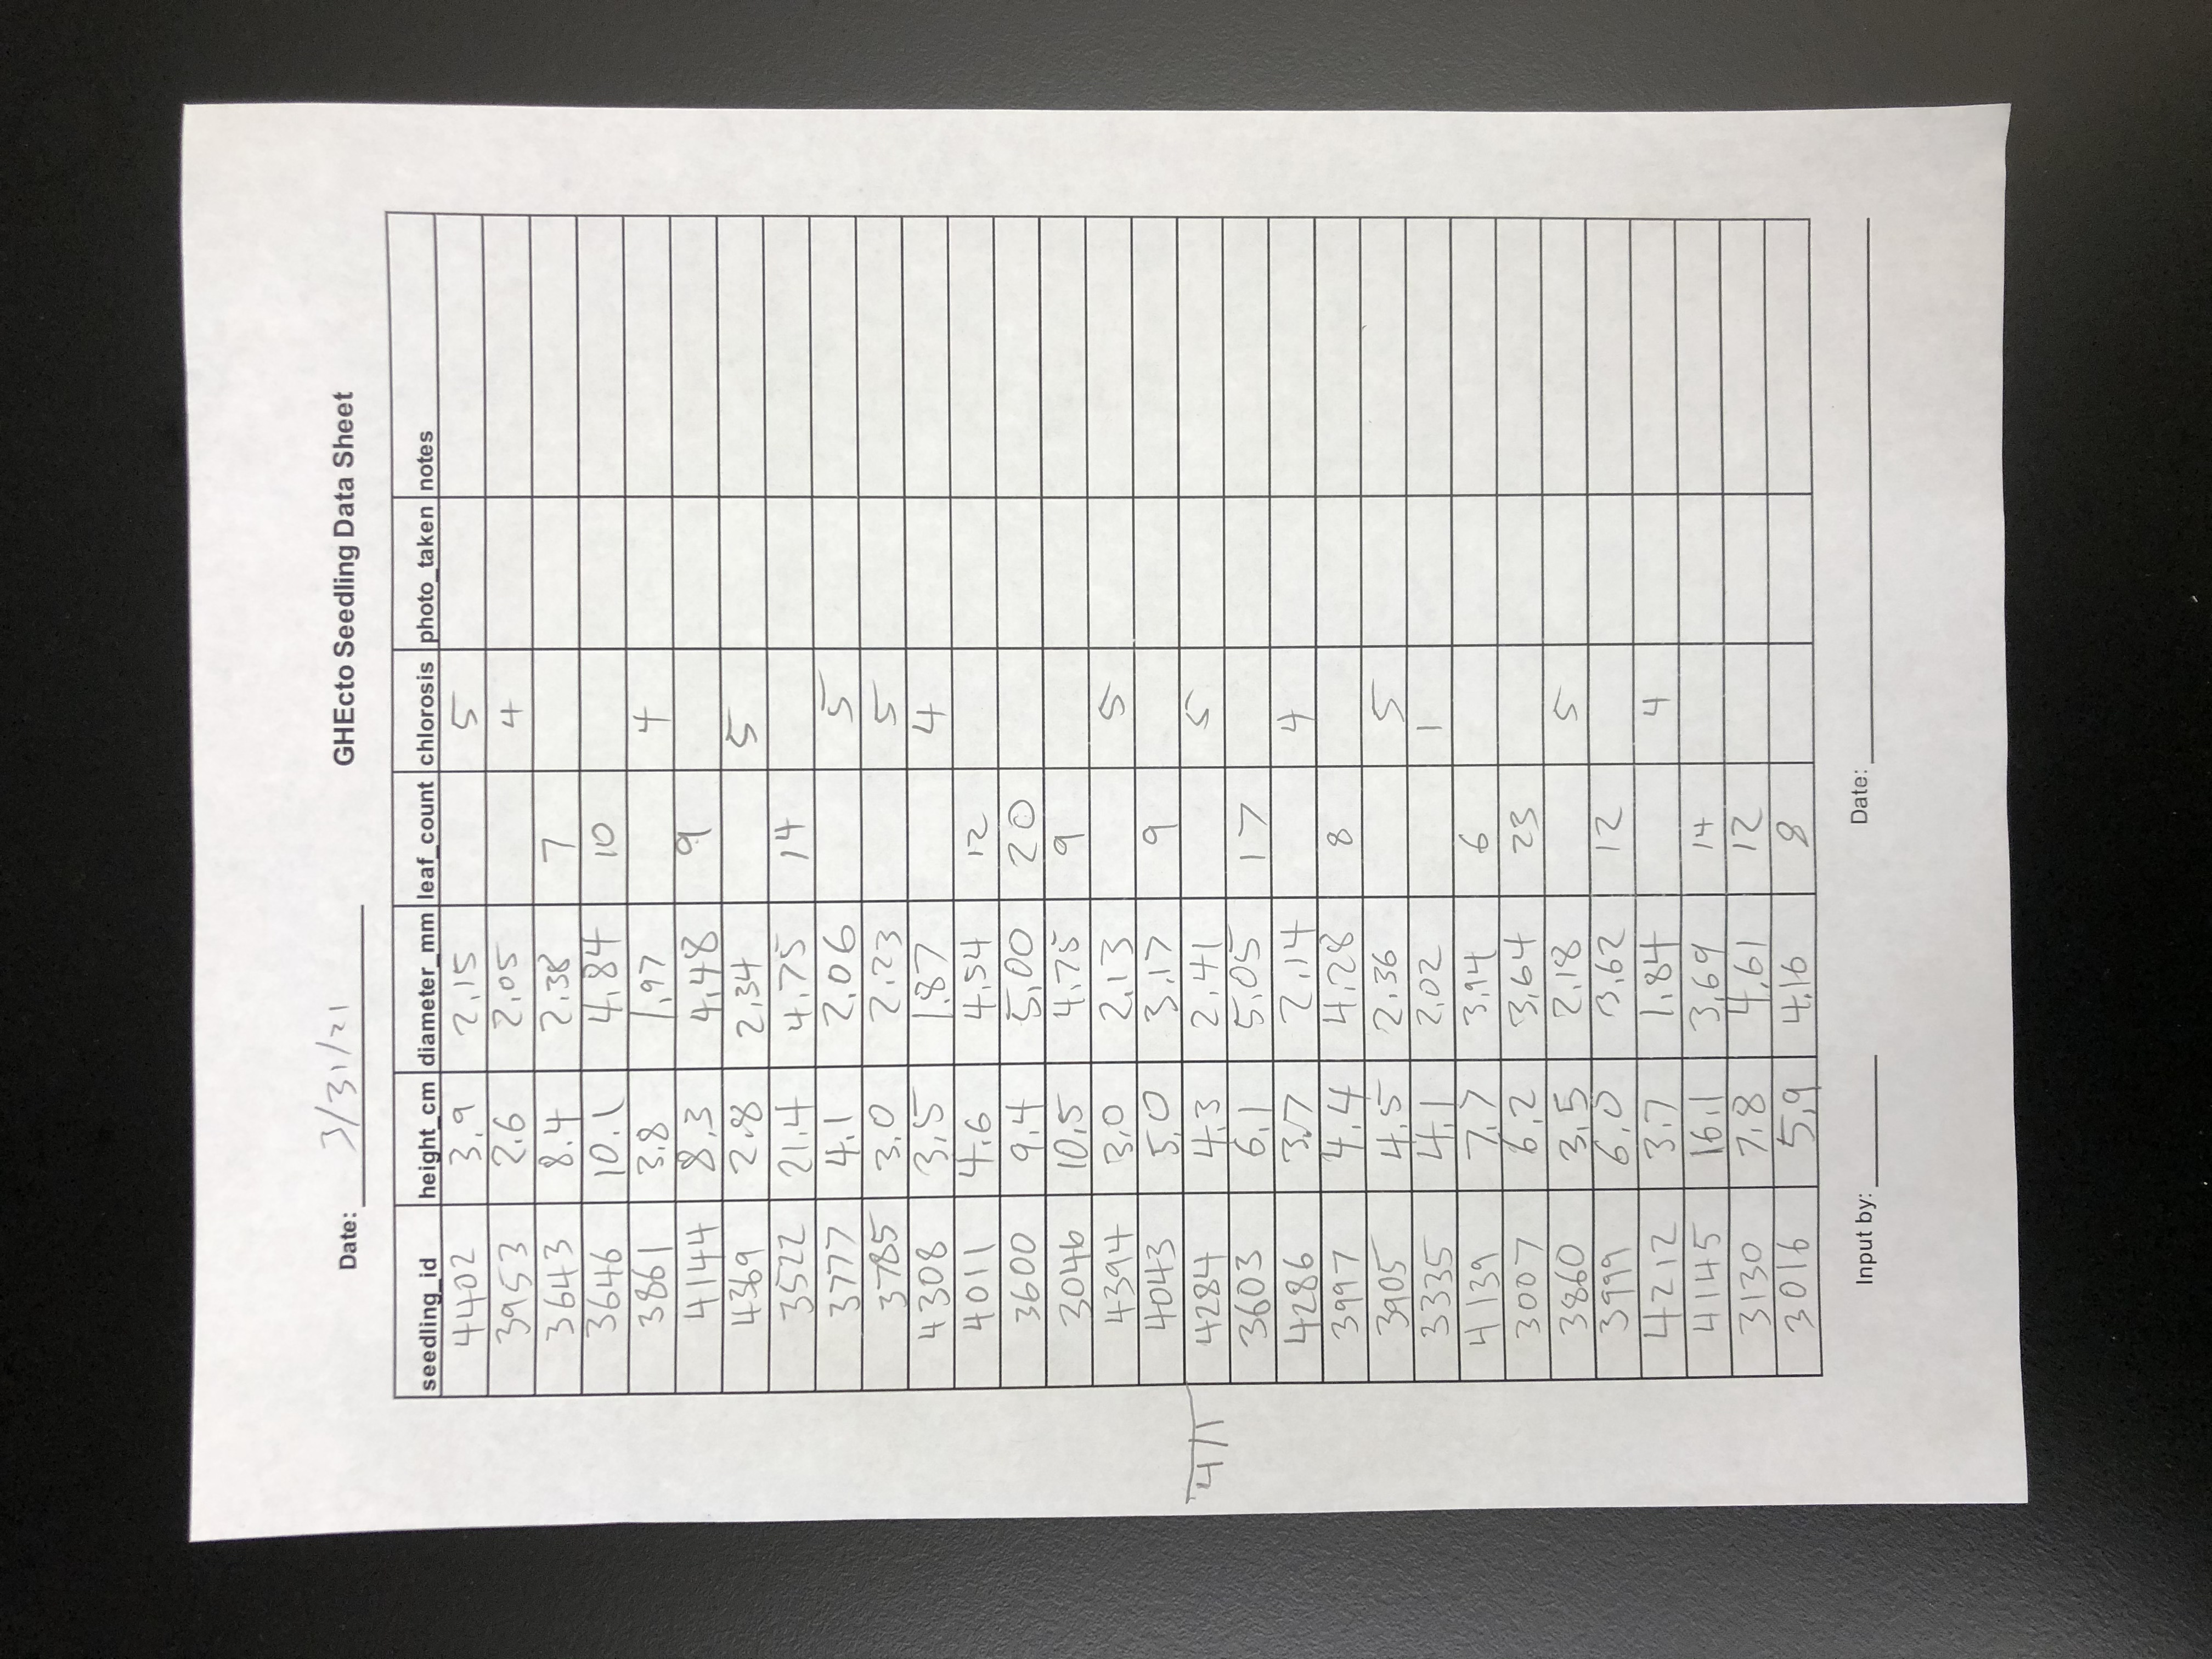 GHEcto Seedling Data Sheet
Date: 3/31/21
seedling_id height_cm diameter_mm leaf_count chlorosis photo_taken notes
4402 3.9 2.15 5
3953 2.6 2.05 4
3643 8.4 2.38 7
3646 10.1 4.84 10
3861 3.8 1.97 4
4144 8.3 4.48 9
4369 2.8 2.34 5
3522 21.4 4.75 14
3777 4.1 2.06 5
3785 3.0 2.23 5
4308 3.5 1.87 4
4011 4.6 4.54 12
3600 9.4 5.00 20
3046 10.5 4.75 9
4394 3.0 2.13 5
4043 5.0 3.17 9
4/1
4284 4.3 2.41 5
3603 6.1 5.05 17
4286 3.7 2.14 4
3997 4.4 4.28 8
3905 4.5 2.36 5
3335 4.1 2.02 1
4139 7.7 3.94 6
3007 6.2 3.64 23
3860 3.5 2.18 5
3999 6.0 3.62 12
4212 3.7 1.84 4
4145 16.1 3.69 14
3130 7.8 4.61 12
3016 5.9 4.16 8
Input by: Date: